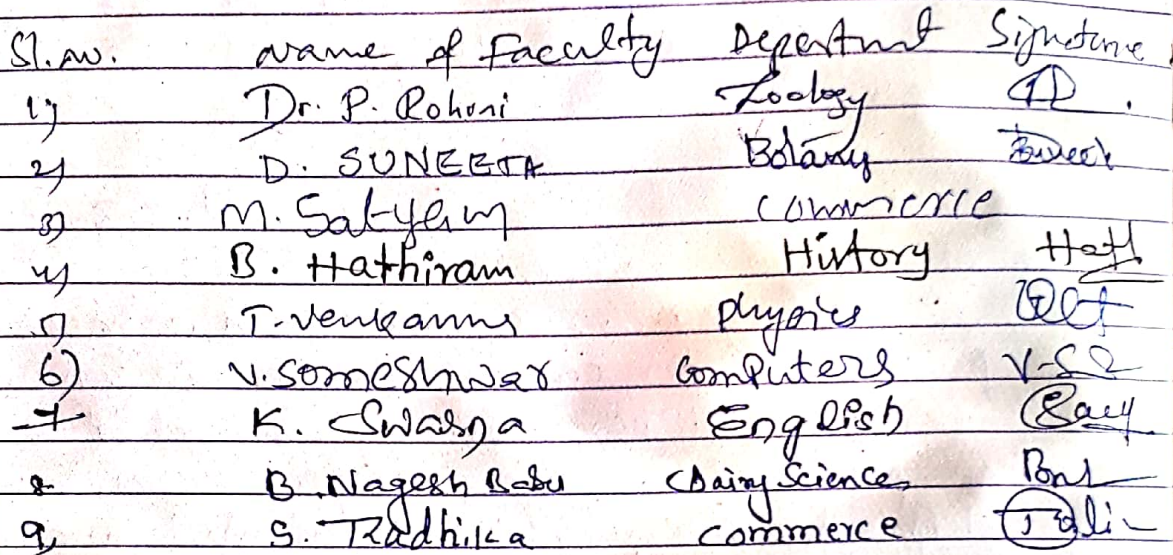 Sl. no. Name of Faculty Department Signature
1) Dr. P. Rohini Zoology
2) D. SUNEETA Botany
3) M. Satyam Commerce
4) B. Hathiram History Hath
5) T. Venkanna Physics
6) V. Someshwar Computers V-S
7 K. Swarna English
8. B. Nagesh Babu Dairy Science
9, S. Radhika Commerce